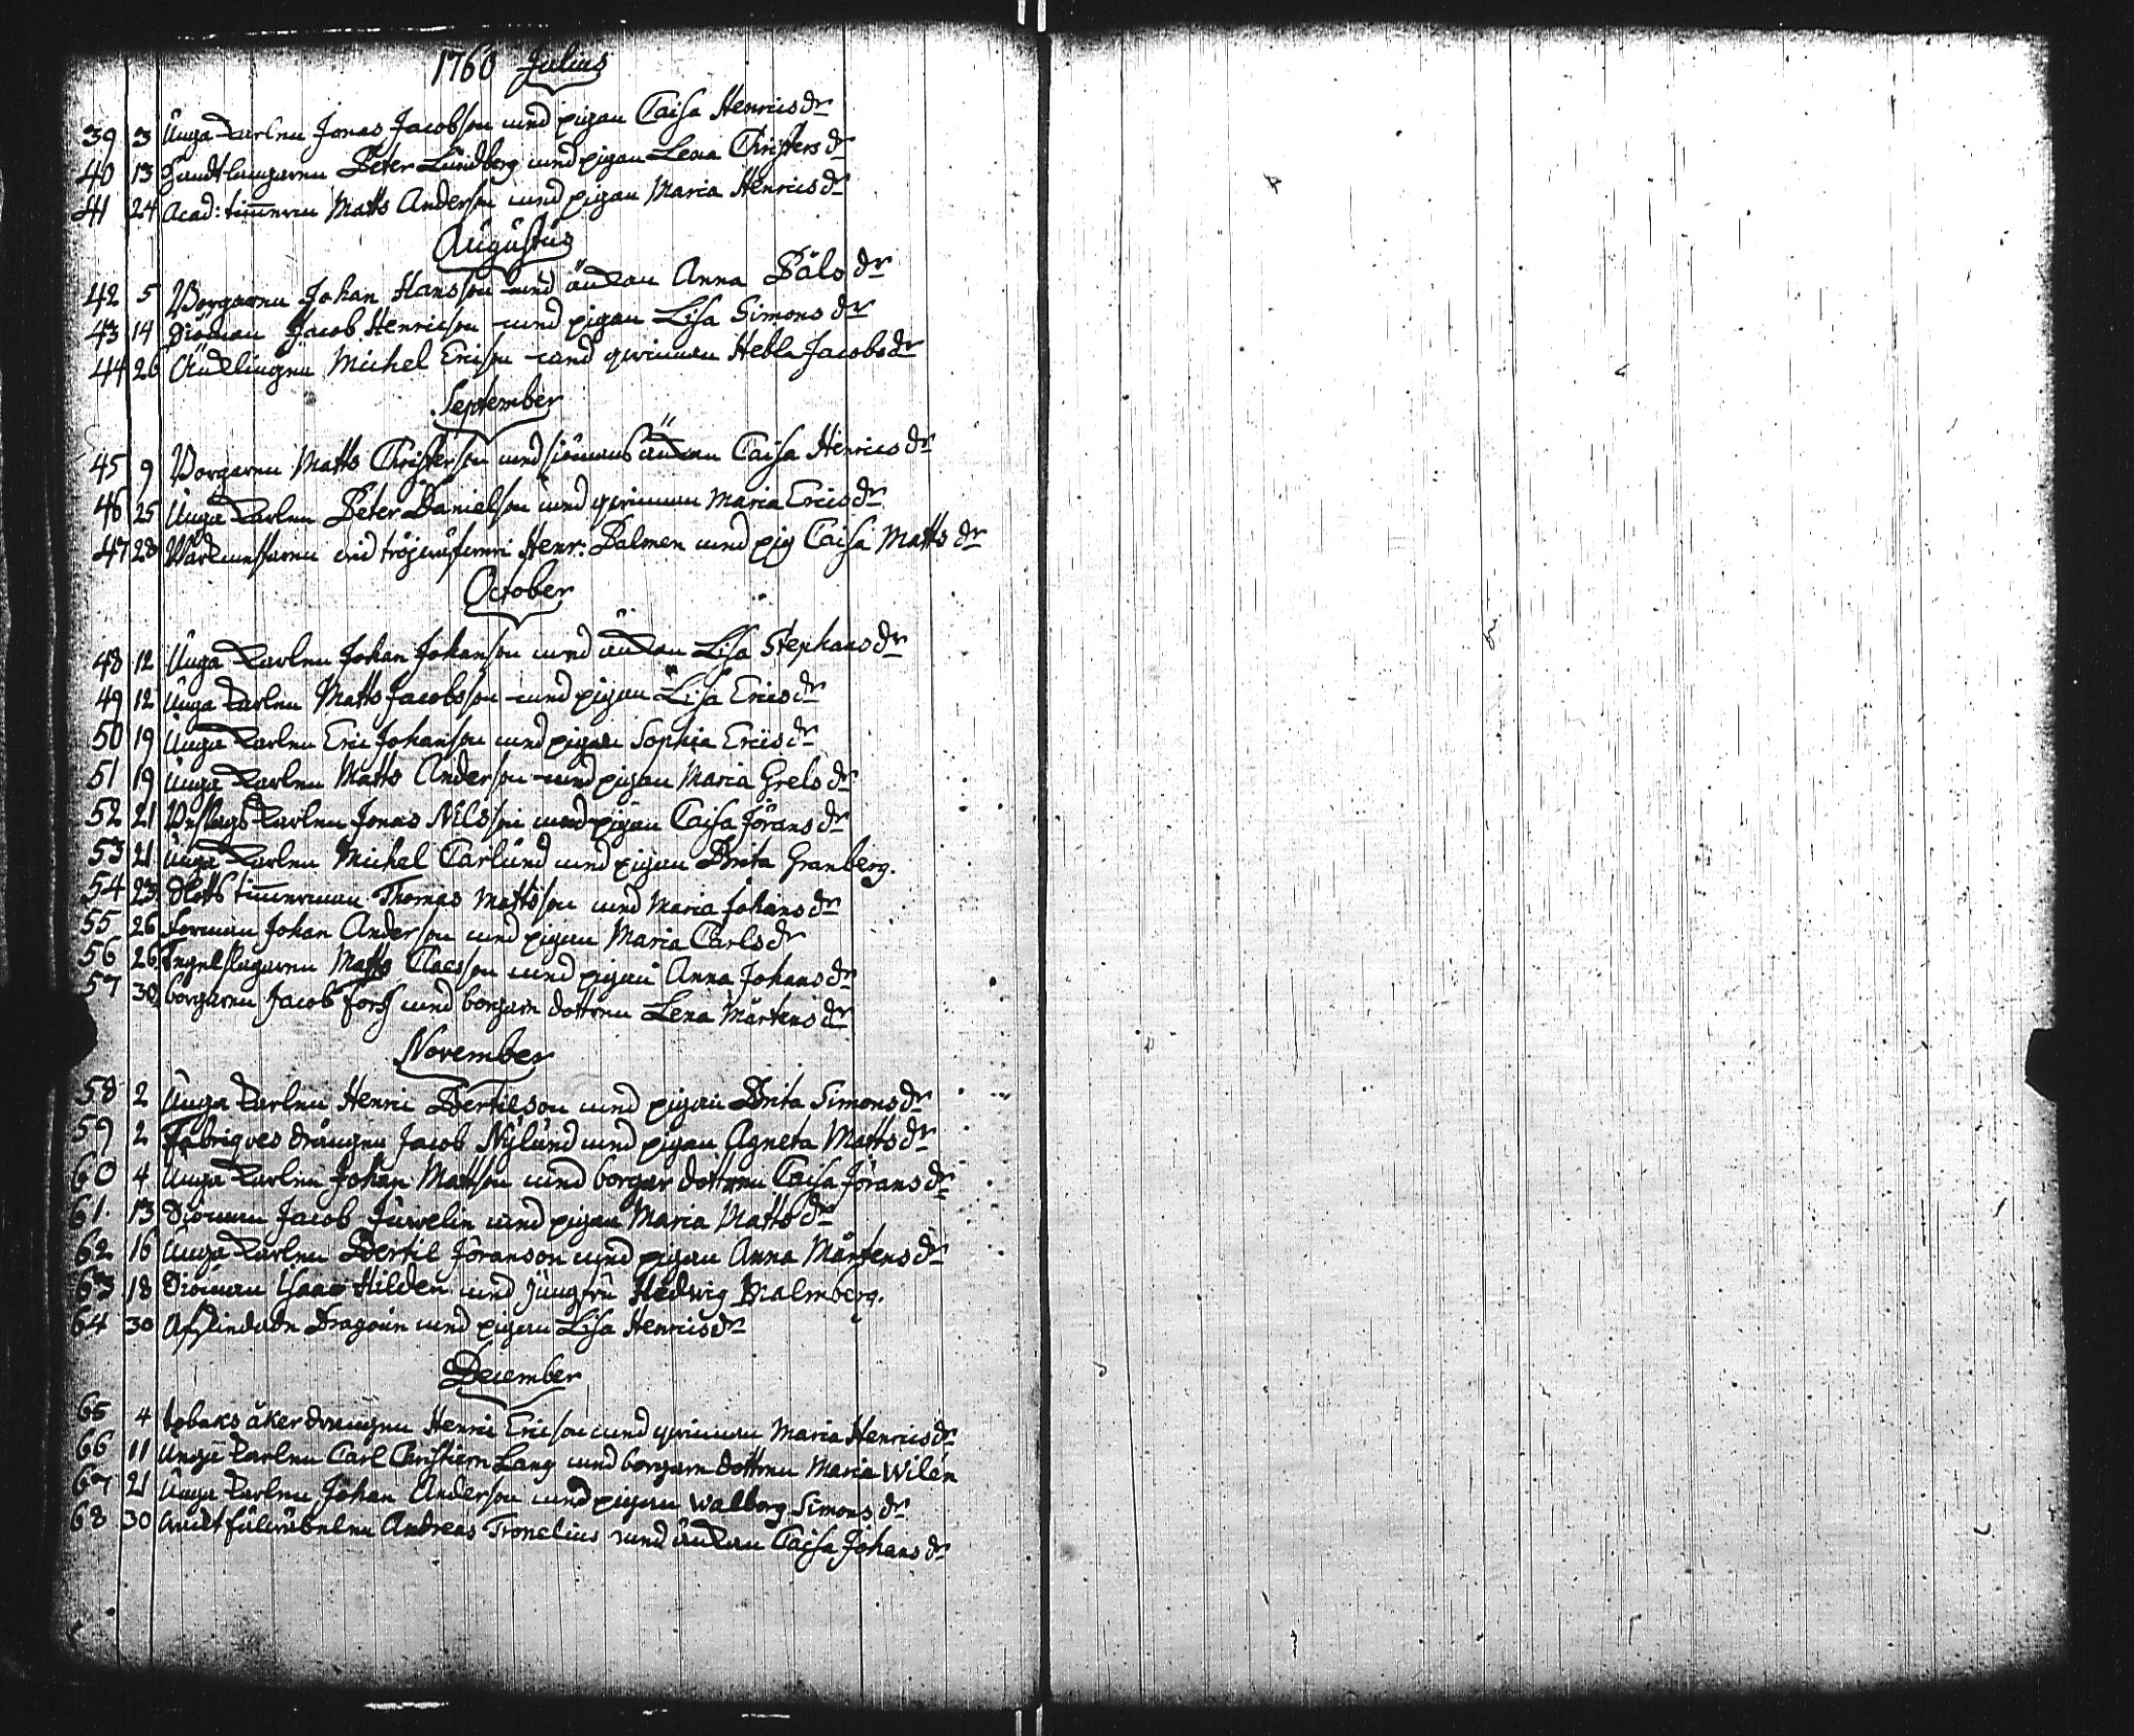 1760 Julius
39 3 Unga Karlen Jonas Jacobson med pigan Caisa Henricsdr
40 13 Handtlangaren Peter Lundberg med pigan Lena Christersdr
41 24 Acad: tim̄erm Matts Anderson med pigan Maria Henricsdr
Augustus
42 5 Borgaren Johan Hansson med änkan Anna Pålsdr
43 14 Siöman Jacob Henricson med pigan Lisa Simonsdr
44 26 Änklingen Michel Ericson med qwinnan Hebla Jacobsdr
September
45 9 Borgaren Matts Christerson med siömans änkan Caisa Henricsdr
46 25 Unga Karlen Peter Danielson med qwinnan Maria Ericsdr
47 28 Wärkmästaren vid Henr: Palmen med pig Caisa Mattsdr
October
48 12 Unga Karlen Johan Johanson med änkan Lisa Stephansdr
49 12 Unga Karlen Matts Jacobsson med pigan Lisa Ericsdr
50 19 Unga Karlen Eric Johanson med pigan Sophia Ericsdr
51 19 Unga Karlen Matts Anderson med pigan Maria Grelsdr
52 21 Karlen Jonas Nilsson med pigan Caisa Jöransdr
53 21 Unga Karlen Michel Carlund med pigan Brita Granberg.
54 23 Slotts timmerman Thomas Mattsson med Maria Johansdr
55 26 Forman Johan Anderson med pigan Maria Carlsdr
56 26 Tegelslagaren Matts Claesson med pigan Anna Johansdr
57 30 borgaren Jacob Forss med borgare dottren Lena Mårtensdr
November
58 2 Unga Karlen Henric Bertilson med pigan Brita Simonsdr
59 2 Fabriques drängen Jacob Nylund med pigan Agneta Mattsdr
60 4 Unga Karlen Johan Mattson med borgar dottren Caisa Jöransdr
61 13 Siöman Jacob Juvelin med pigan Maria Mattsdr
62 16 Unga Karlen Bertil Jöranson med pigan Anna Mårtensdr
63 18 Siöman Isaac Hilden med Jungfru Hedwig Malmberg.
64 30 Afskedade Dragoun med pigan Lisa Henricsdr
December
65 4 tobaks åker drängen Henric Ericson med qwinnan Maria Henricsdr
66 11 Unga Karlen Carl Christiern Lang med borgare dottren Maria Wilén
67 21 Unga Karlen Johan Anderson med pigan Walborg Simonsdr
68 30 Andreas Tronelius med änkan Caisa Johansdr